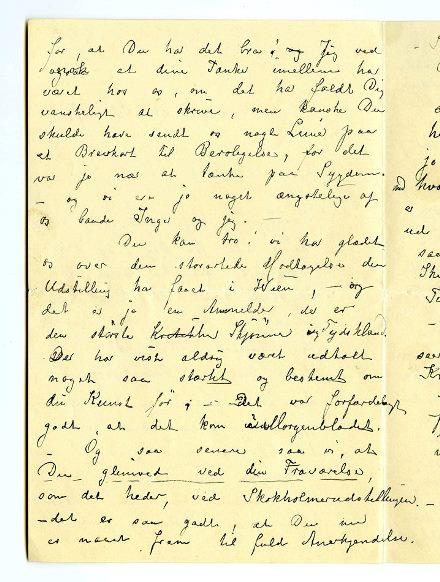 for, at Du har det bra; og Jeg ved
også at dine Tanke imellem har
været hos os, om det har faldt Dig
vanskeligt at skrive, men kanske Du
skulde have sendt os nogle Linie paa
et Brevkort til Beroligelse, for det
var jo nær at tænke paa Sygdom.
– og vi er jo noget ængstelige af
os baade Inger og jeg. –
Du kan tro! vi har glædet
os over den storartede Modtagelse din
Udstilling har faaet i Wien, – og
det er jo en Anmelder, der er
den største Skjønner i Tydskland.
Der har vist aldrig været udtalt
noget saa stærkt og bestemt om
din Kunst før; – Det var forfærdeligt
godt, at det kom i Morgenbladet.
– Og saa senere saa vi, at
Du glimred ved din Fraværelse,
som det heder, ved Stokholmerudstillingen.
– det er saa godt, at Du nu
er naaet frem til fuld Anerkjendelse.
jo
er
ud
saa